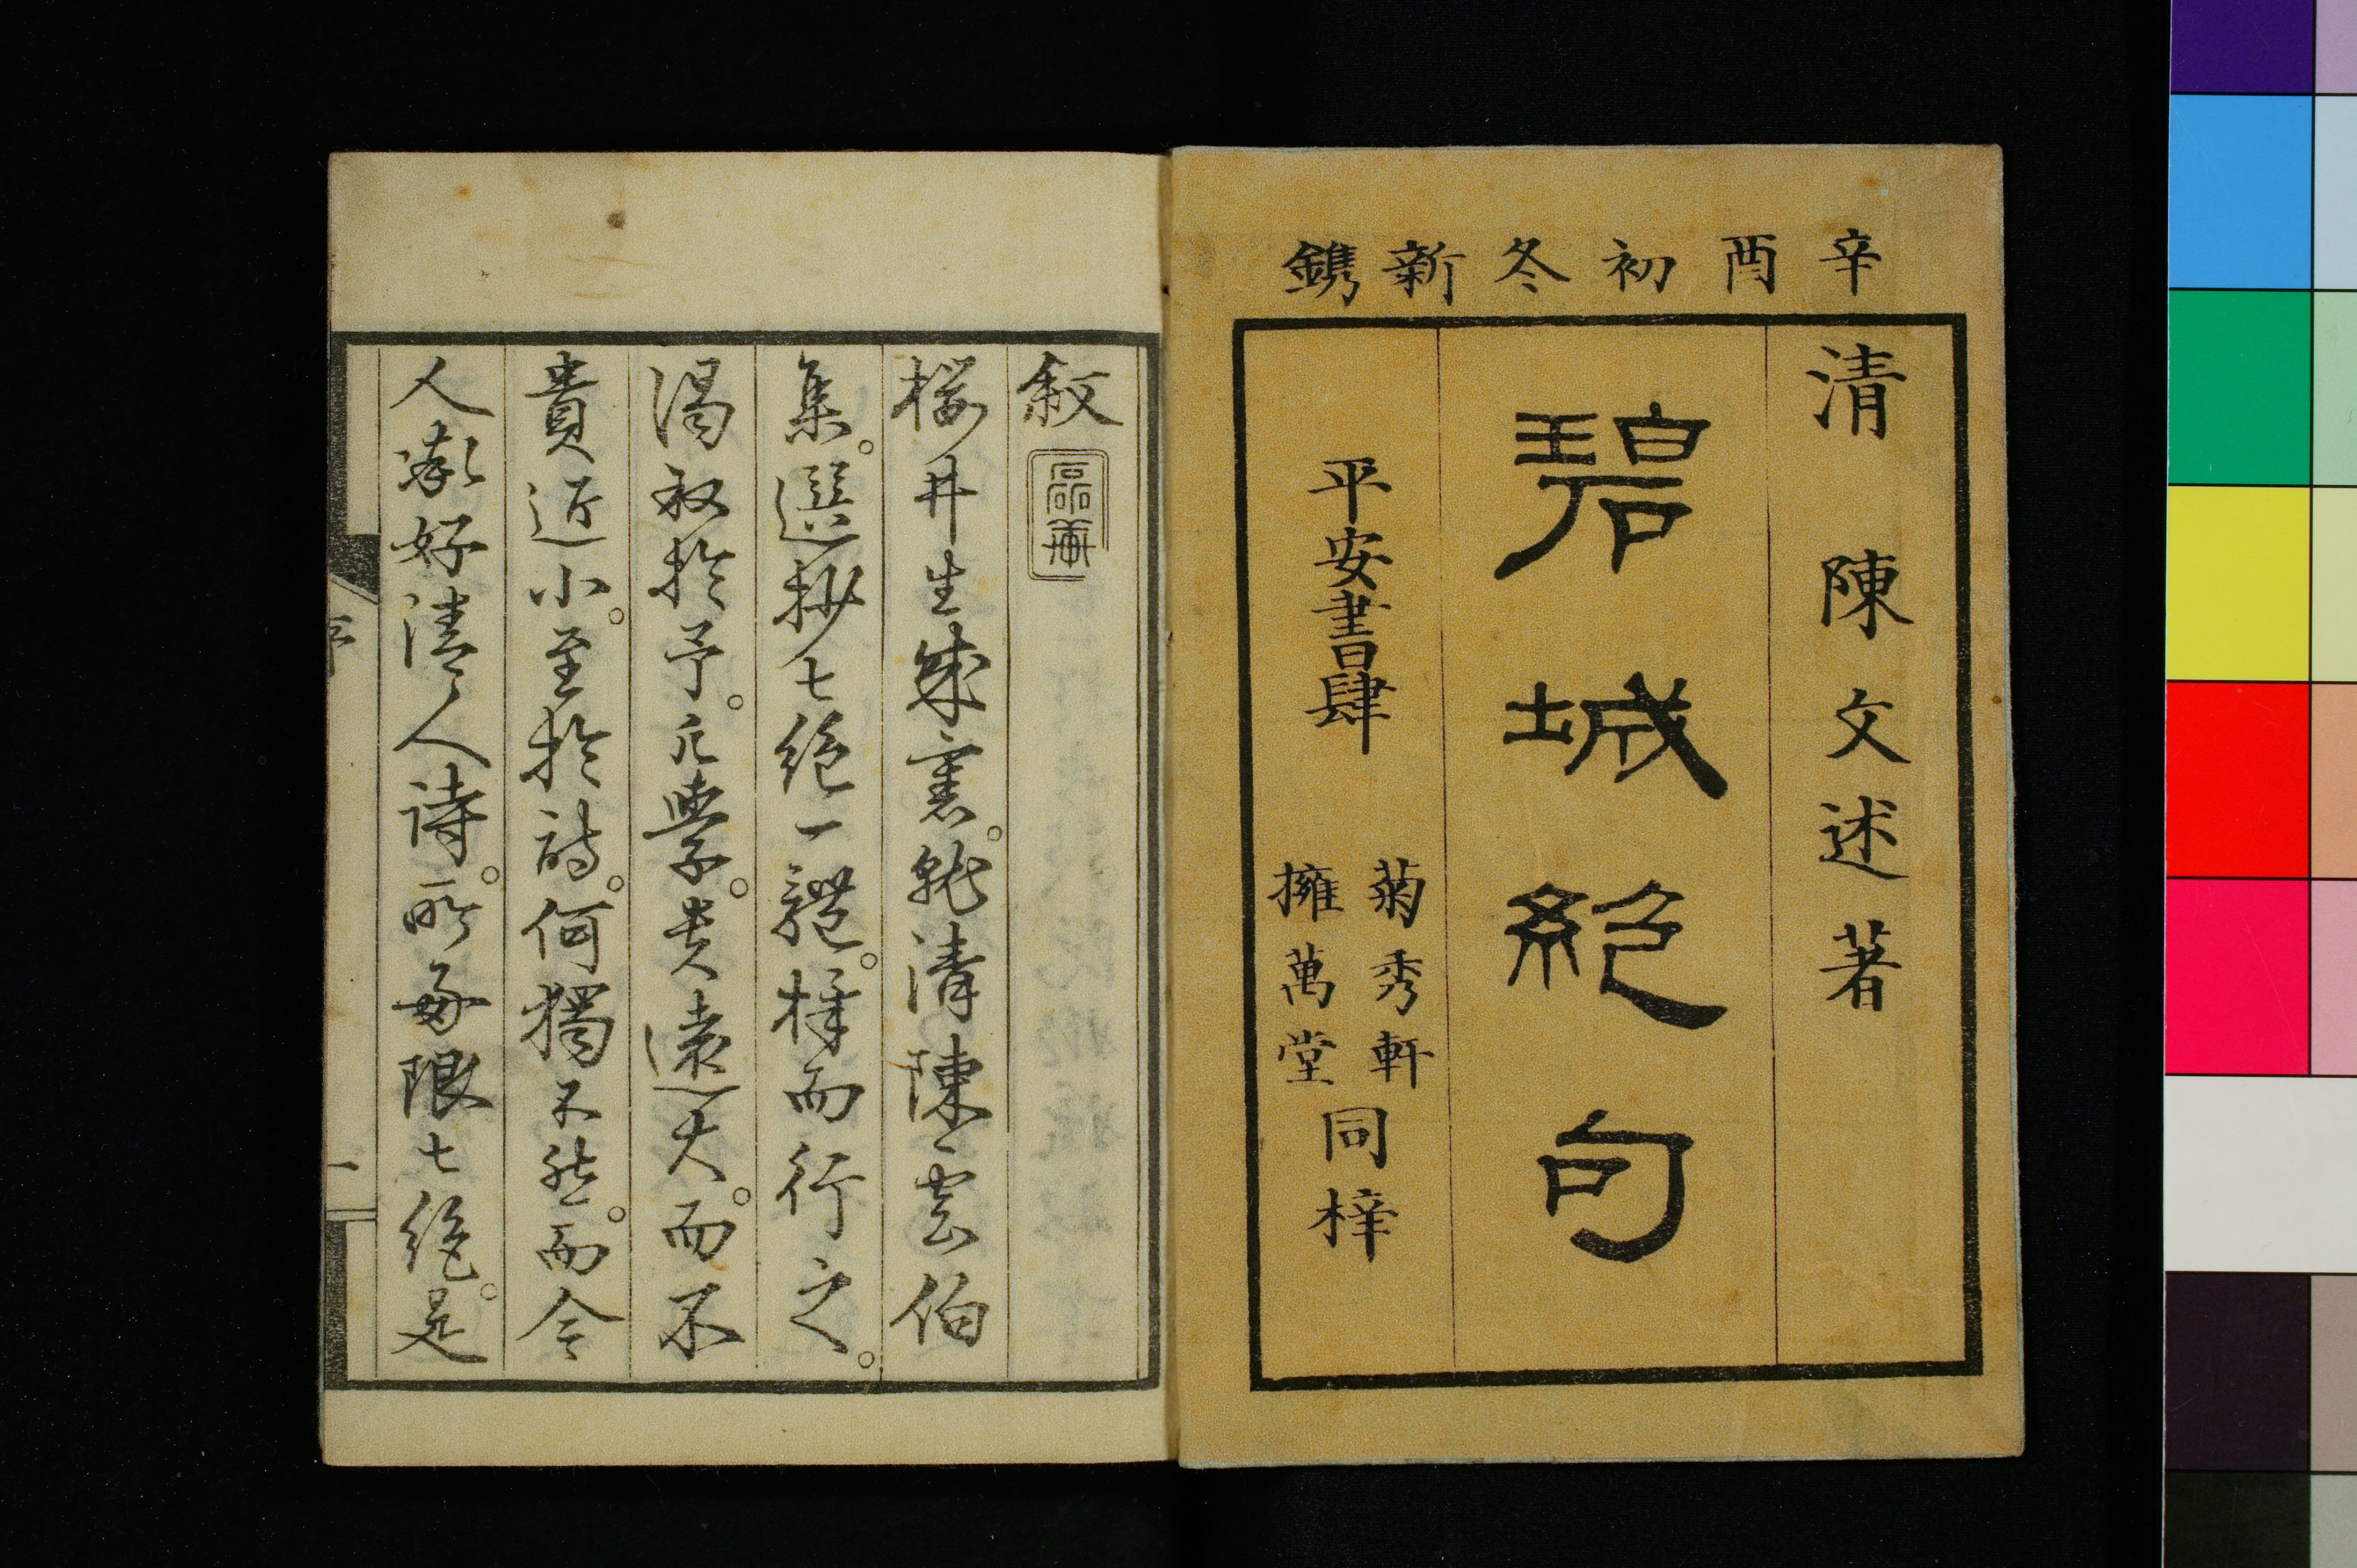 辛酉初冬新鐫
清 陳文述著
碧城絕句
平安書肆
菊秀軒
擁萬堂
同梓
敘
櫻井生成憲。就清陳雲伯
集。選抄七絕一體。梓而行之。
謁敘於予。凡學。貴遠大。而不
貴近小。至於詩。何獨不然。而今
人漸好清人詩。所毎限七絕。是
序
一